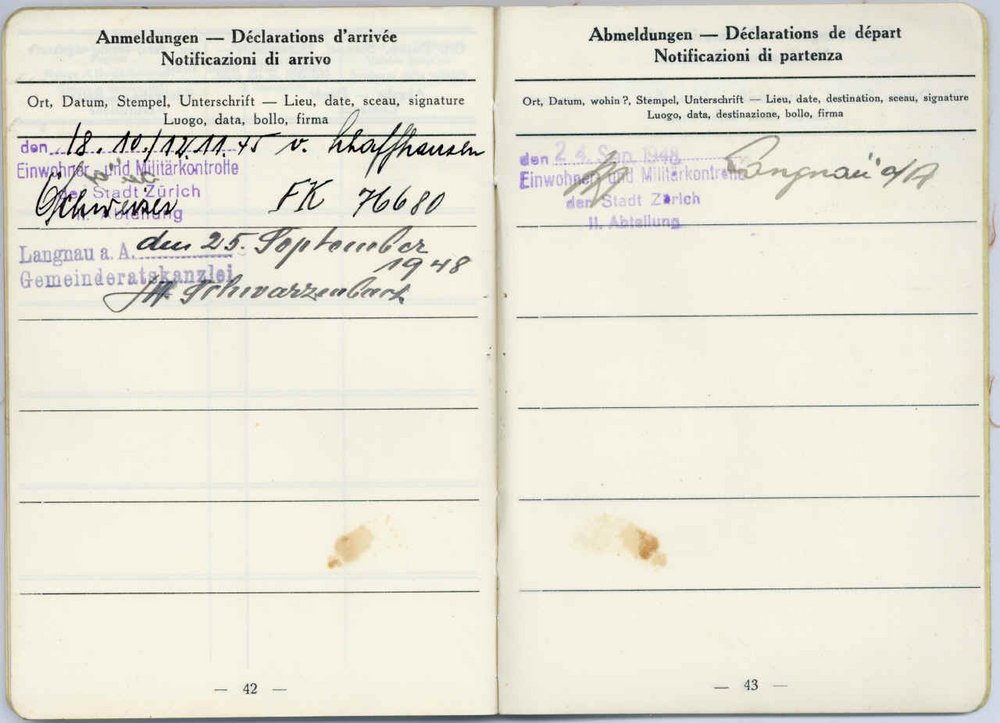 Anmeldungen — Déclarations d'arrivée
Notificazioni di arrivo
Ort, Datum, Stempel, Unterschrift — Lieu, date, sceau, signature
Luogo, data, bollo, firma
den 18. 10./12.11.45 v. Schaffhausen
Einwohner- und Militärkontrolle
der Stadt Zürich
Schweizer FK 76680
II. Abteilung
Langnau a. A. den 25. September
1948
Gemeinderatskanzlei
Schwarzenbach
— 42 —
Abmeldungen — Déclarations de départ
Notificazioni di partenza
Ort, Datum, wohin?, Stempel, Unterschrift — Lieu, date, destination, sceau, signature
Luogo, data, destinazione, bollo, firma
den 24. Sep. 1948 Langnau a/A
Einwohner- und Militärkontrolle
der Stadt Zürich
II. Abteilung
— 43 —